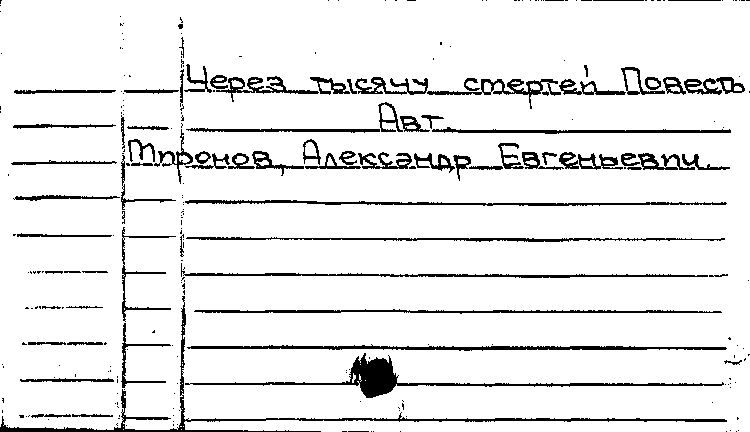 Через тысячу смертей Повесть
Авт.
Миронов, Александр Евгеньевич.